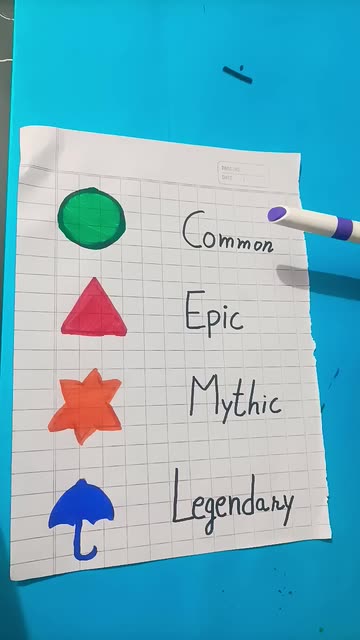 Common
Epic
Mythic
Legendary